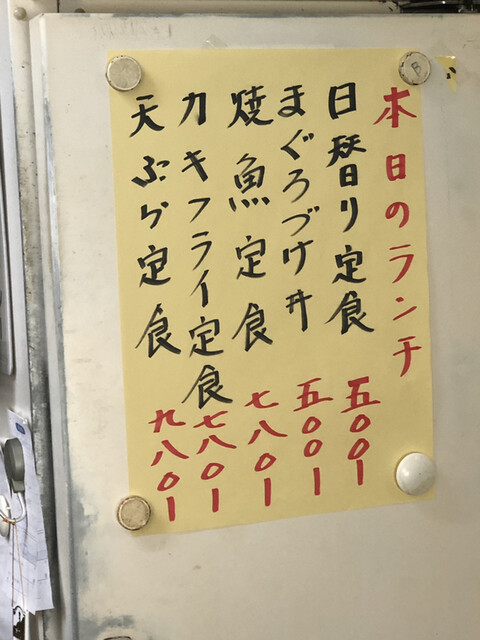 本日のランチ
日替り定食 五〇〇ー
まぐろづけ丼 五〇〇ー
焼魚定食 七八〇ー
カキフライ定食 七八〇ー
天ぷら定食 九八〇ー